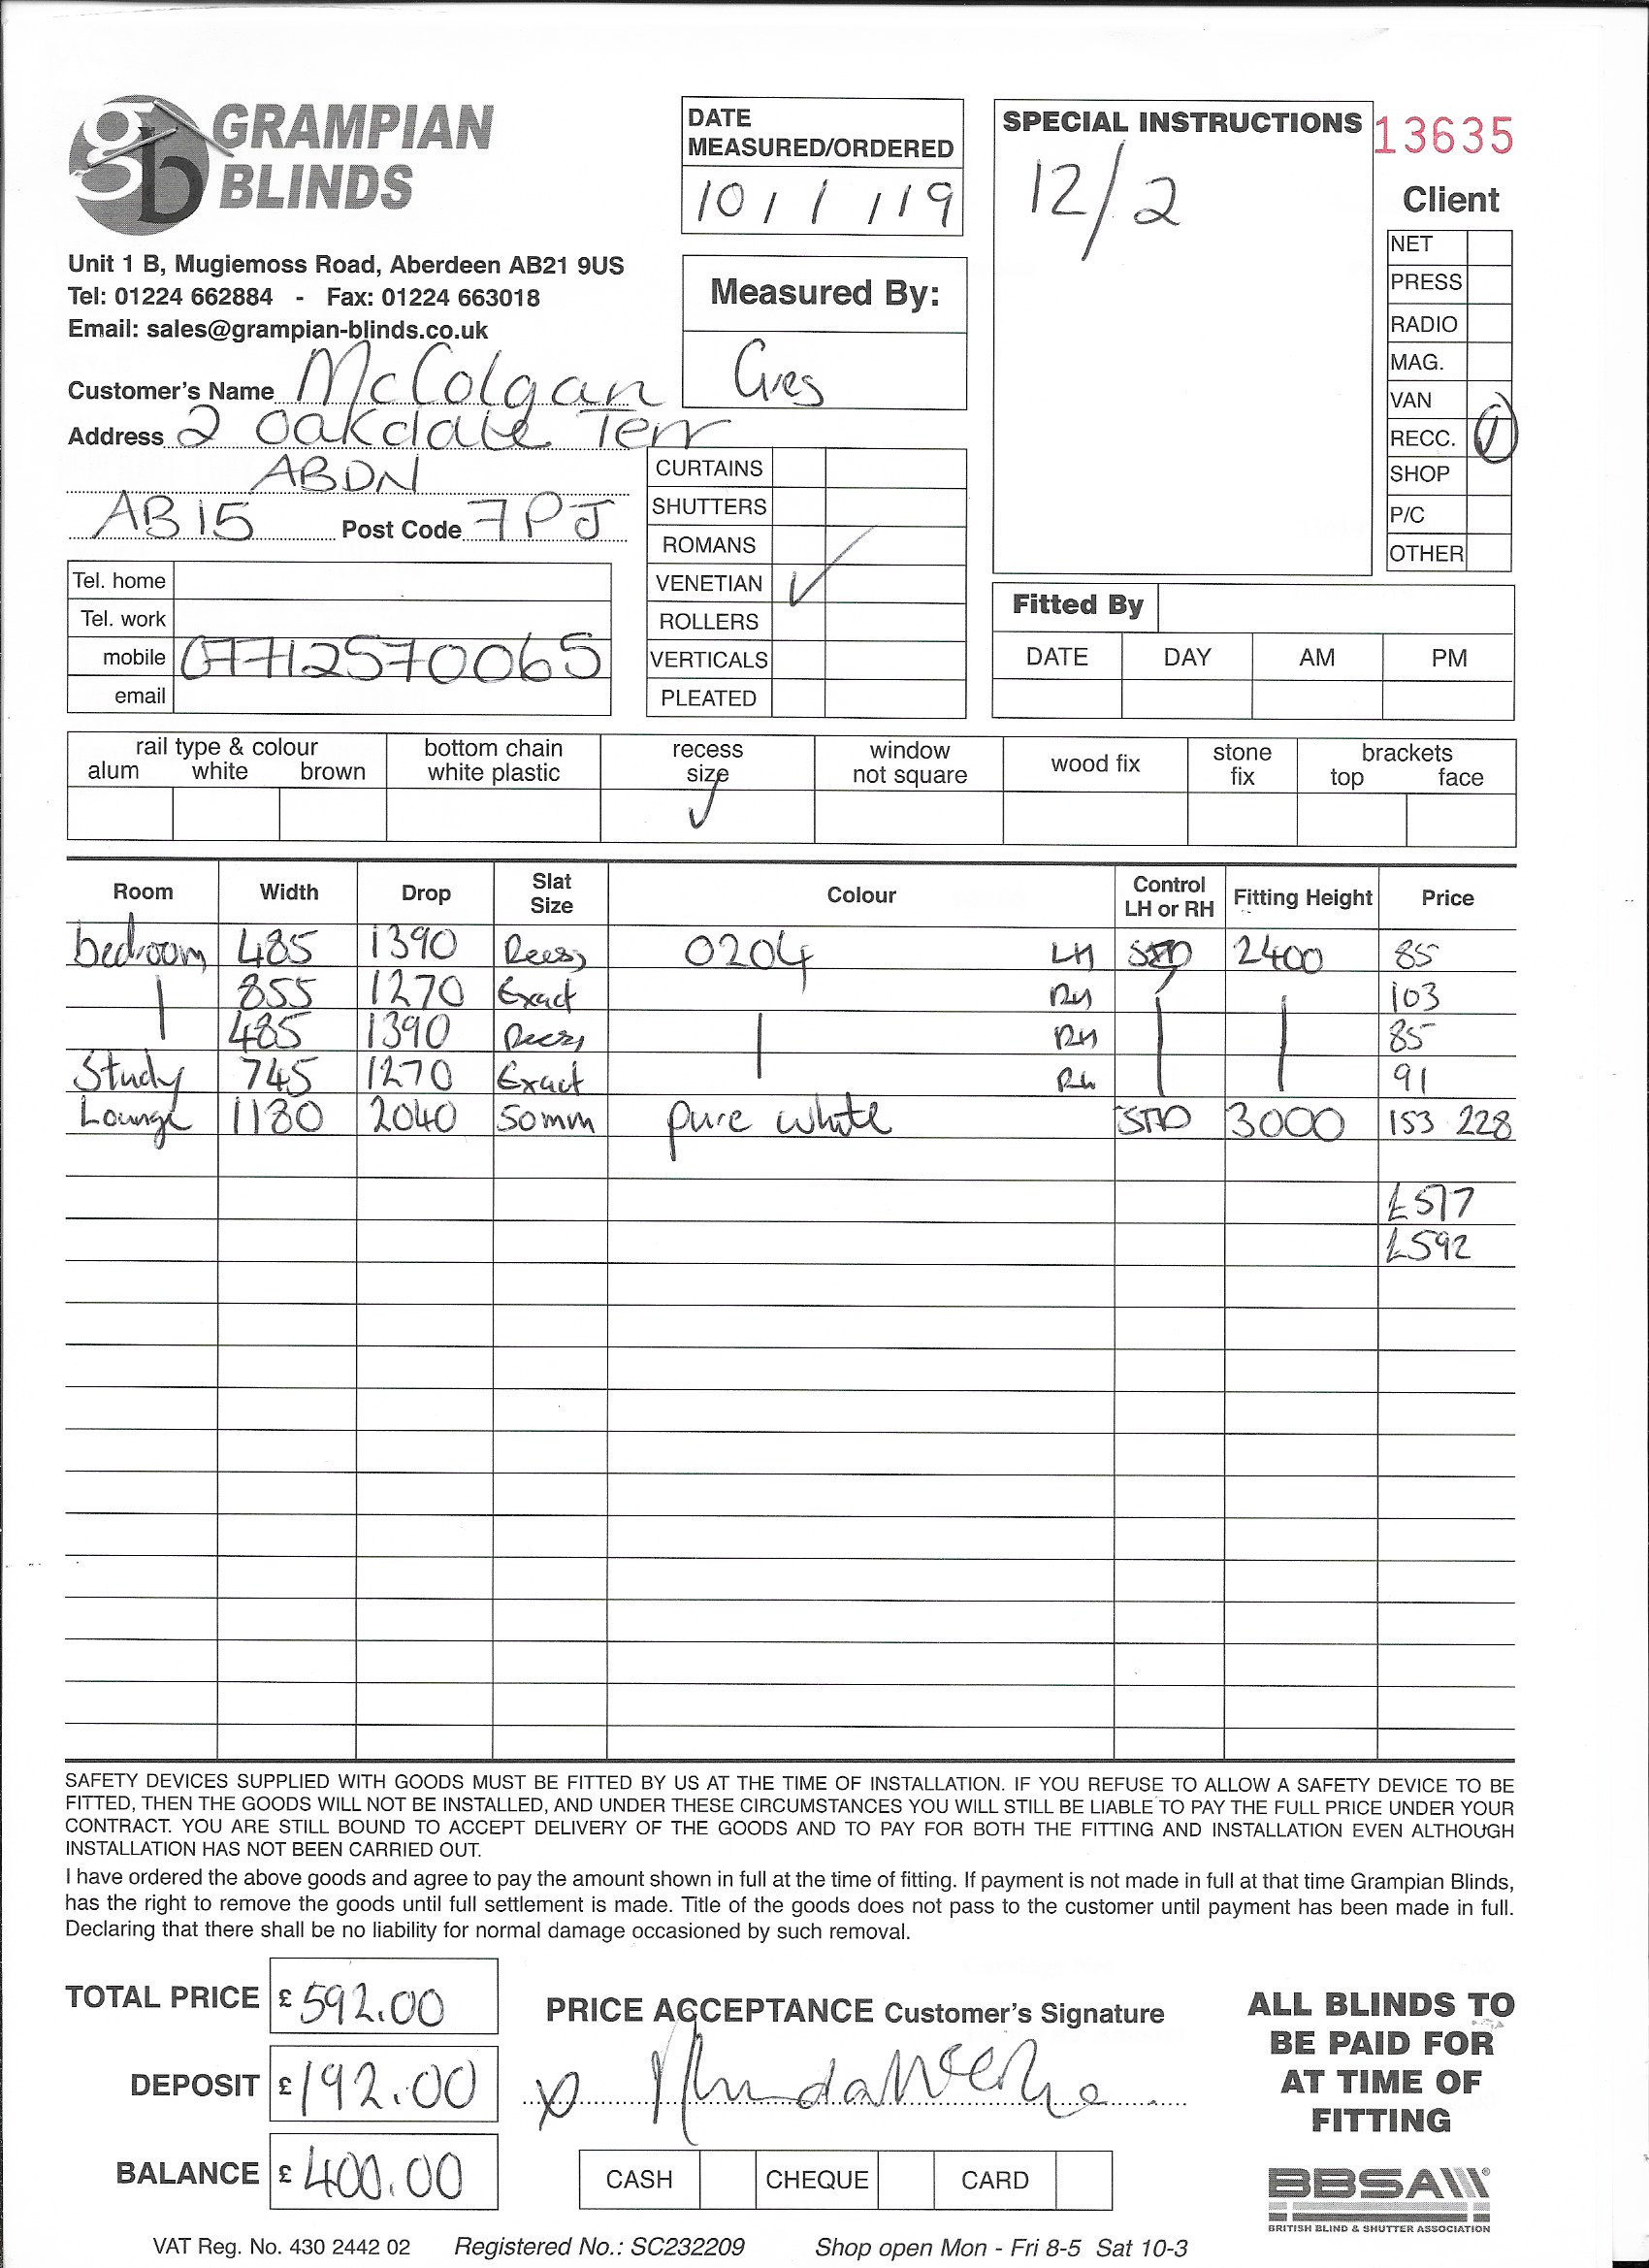 GRAMPIAN
BLINDS
Unit 1 B, Mugiemoss Road, Aberdeen AB21 9US
Tel: 01224 662884 - Fax: 01224 663018
Email: sales@grampian-blinds.co.uk
DATE
MEASURED/ORDERED
10 / 1 / 19
Measured By:
SPECIAL INSTRUCTIONS
12/2
13635
Client
NET
PRESS
RADIO
MAG.
VAN
RECC.
SHOP
P/C
OTHER
Customer's Name McColgan
Address 2 Oakdale Terr
ABDN
AB15 Post Code 7PJ
Tel. home
Tel. work
mobile 07712570065
email
CURTAINS
SHUTTERS
ROMANS
VENETIAN ✓
ROLLERS
VERTICALS
PLEATED
Fitted By
DATE DAY AM PM
rail type & colour
alum white brown
bottom chain
white plastic
recess
size ✓
window
not square
wood fix
stone
fix
brackets
top face
Room Width Drop Slat Size Colour Control LH or RH Fitting Height Price
bedroom 485 1390 Recess 0204 LH STD 2400 85
855 1270 Exact RH 103
485 1390 Recess RH 85
Study 745 1270 Exact RH 91
Lounge 1180 2040 50mm pure white STD 3000 153 228
£517
£592
SAFETY DEVICES SUPPLIED WITH GOODS MUST BE FITTED BY US AT THE TIME OF INSTALLATION. IF YOU REFUSE TO ALLOW A SAFETY DEVICE TO BE
FITTED, THEN THE GOODS WILL NOT BE INSTALLED, AND UNDER THESE CIRCUMSTANCES YOU WILL STILL BE LIABLE TO PAY THE FULL PRICE UNDER YOUR
CONTRACT. YOU ARE STILL BOUND TO ACCEPT DELIVERY OF THE GOODS AND TO PAY FOR BOTH THE FITTING AND INSTALLATION EVEN ALTHOUGH
INSTALLATION HAS NOT BEEN CARRIED OUT.
I have ordered the above goods and agree to pay the amount shown in full at the time of fitting. If payment is not made in full at that time Grampian Blinds,
has the right to remove the goods until full settlement is made. Title of the goods does not pass to the customer until payment has been made in full.
Declaring that there shall be no liability for normal damage occasioned by such removal.
TOTAL PRICE £592.00
DEPOSIT £192.00
BALANCE £400.00
PRICE ACCEPTANCE Customer's Signature
CASH CHEQUE CARD
ALL BLINDS TO
BE PAID FOR
AT TIME OF
FITTING
BBSA
BRITISH BLIND & SHUTTER ASSOCIATION
VAT Reg. No. 430 2442 02 Registered No.: SC232209 Shop open Mon - Fri 8-5 Sat 10-3